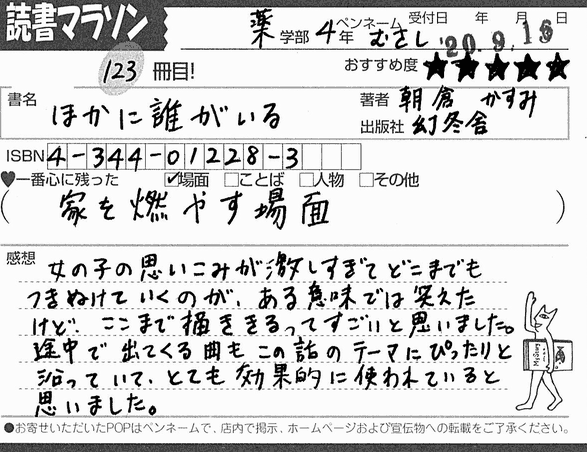 読書マラソン
薬 学部 4 年 ペンネーム むさし 受付日 年 月 日
'20. 9. 16
123 冊目!
おすすめ度 ★★★★★
書名 ほかに誰がいる
著者 朝倉 かすみ
出版社 幻冬舎
ISBN 4-344-01228-3
♥一番心に残った ☑場面 □ことば □人物 □その他
( 家を燃やす場面 )
感想 女の子の思いこみが激しすぎてどこまでも
つきぬけていくのが、ある意味では笑えた
けど、ここまで描ききるってすごいと思いました。
途中で出てくる曲もこの話のテーマにぴったりと
沿っていて、とても効果的に使われていると
思いました。
●お寄せいただいたPOPはペンネームで、店内で掲示、ホームページおよび宣伝物への転載をご了承ください。